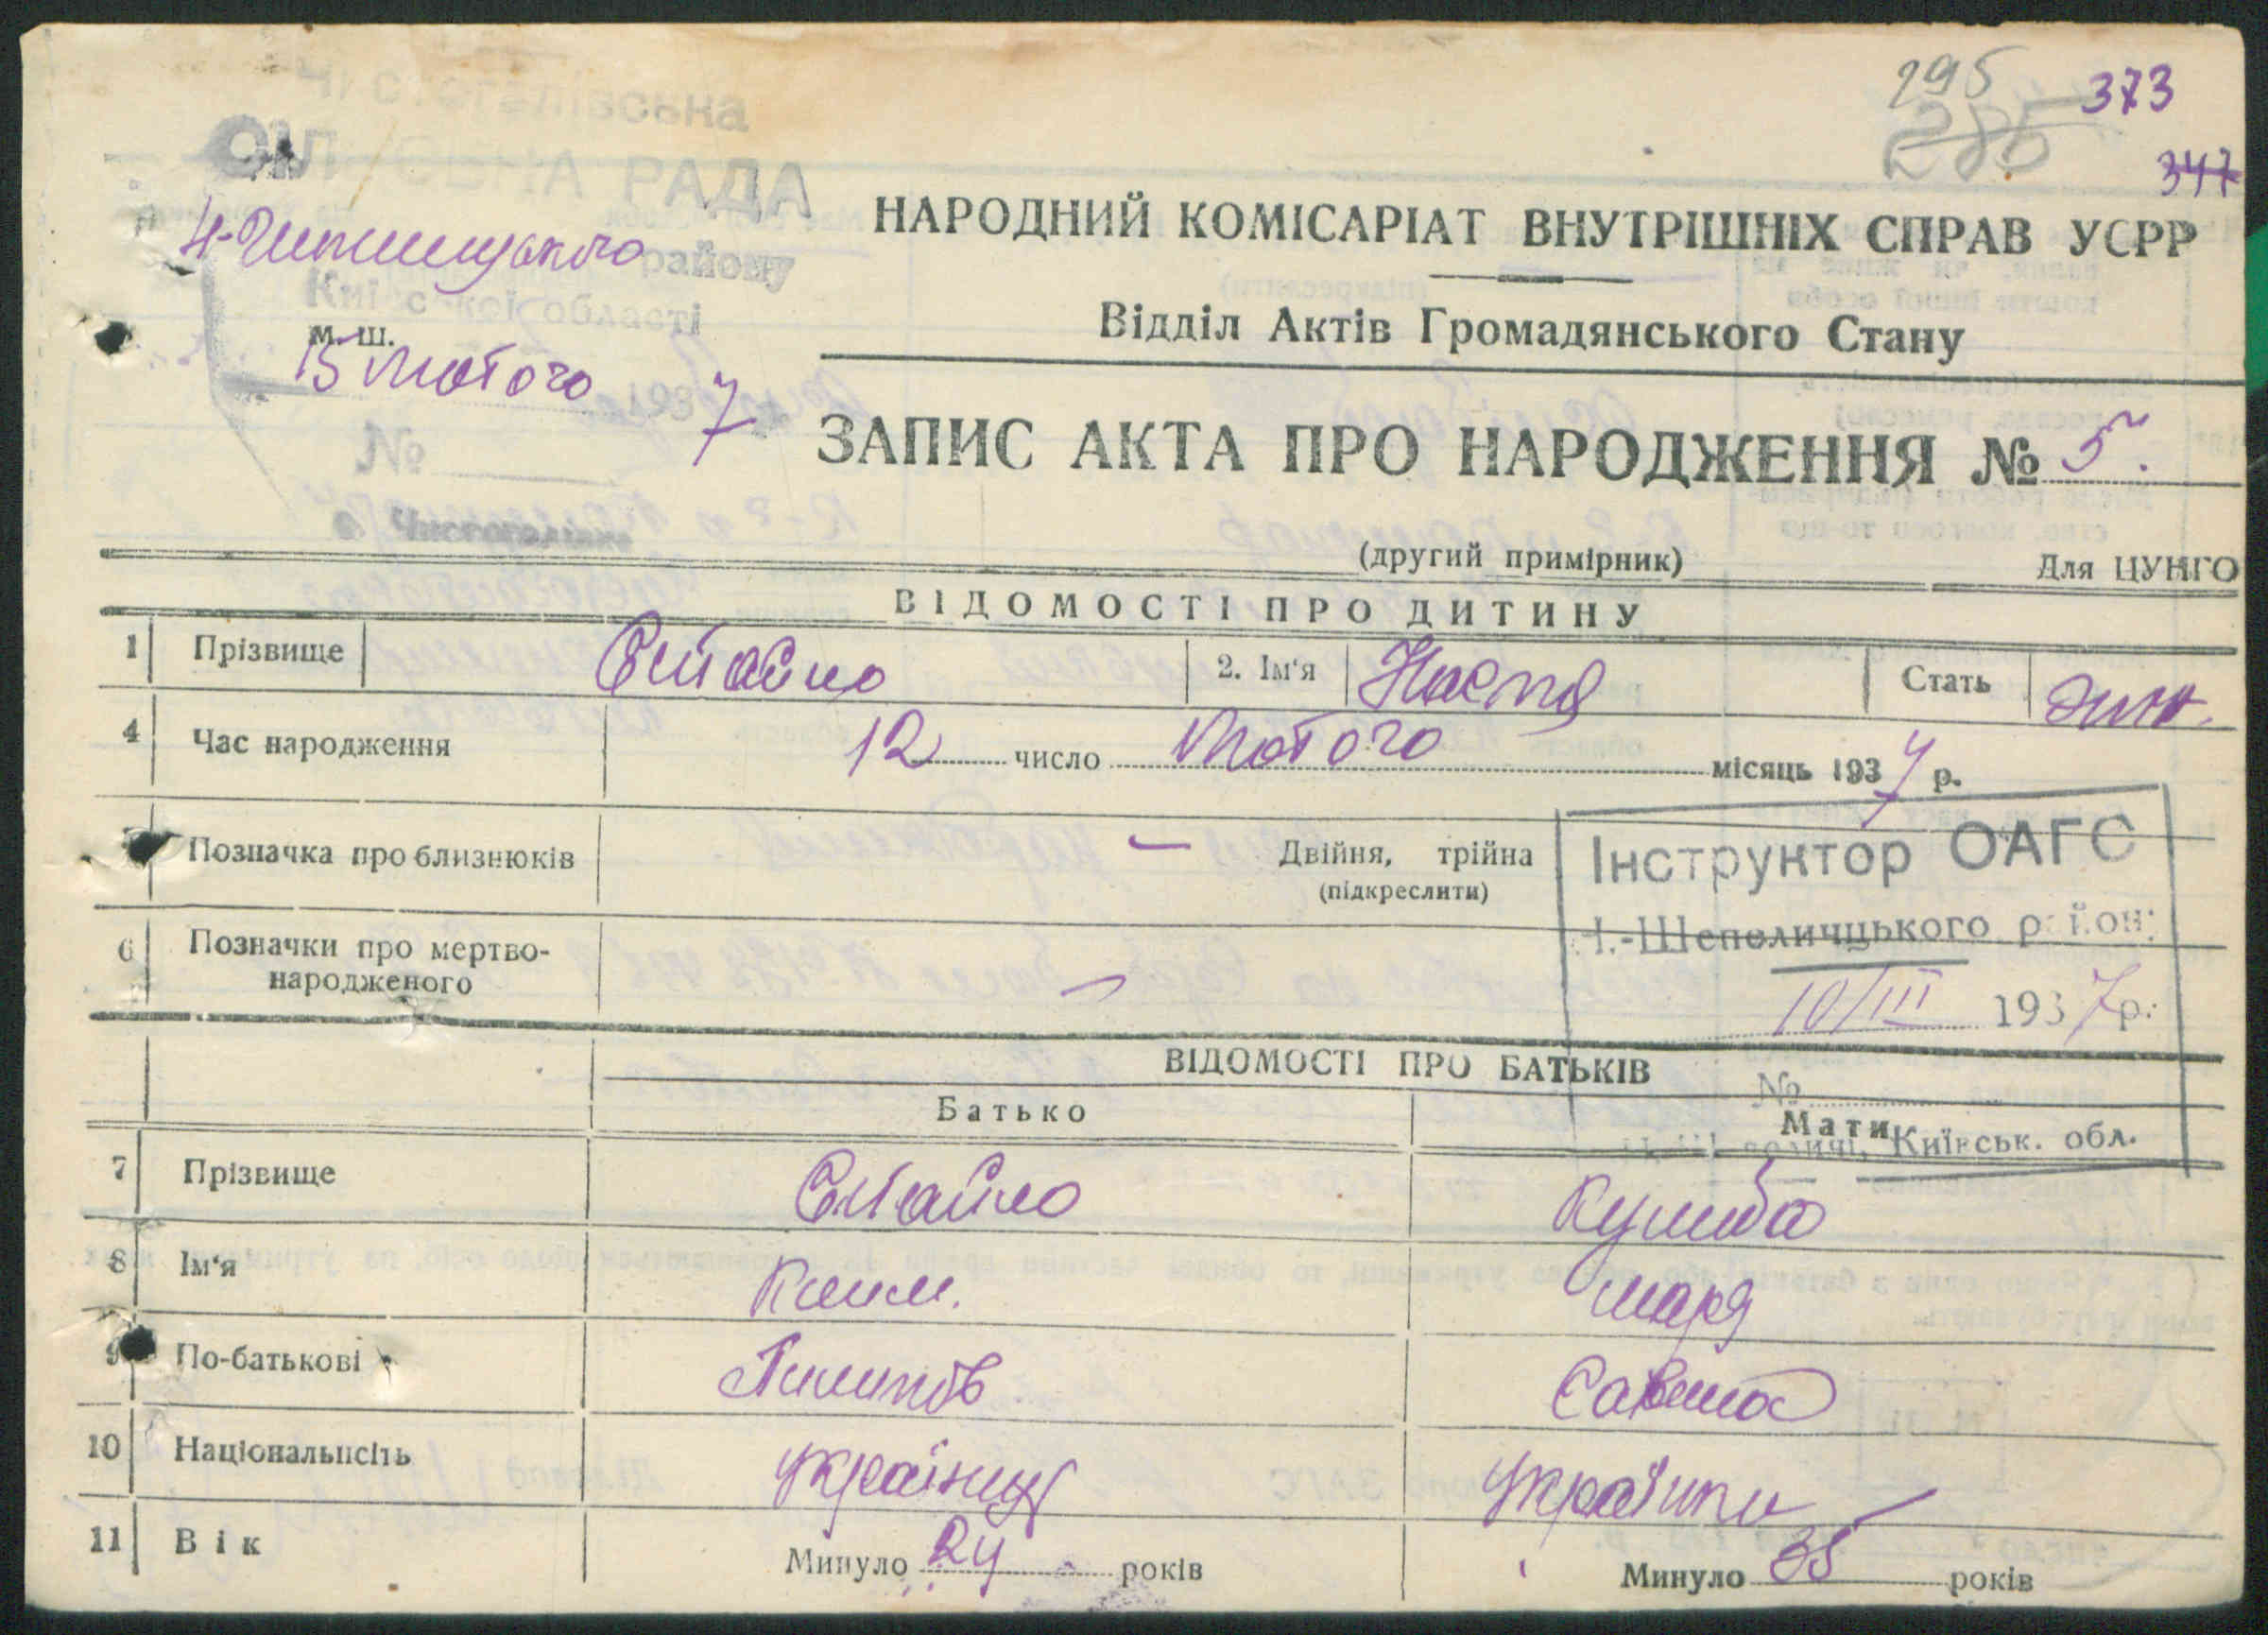 Чистогалівська
295
373
285
347
СІЛЬСЬКА РАДА
НАРОДНИЙ КОМІСАРІАТ ВНУТРІШНІХ СПРАВ УСРР
району
Київської області
Відділ Актів Громадянського Стану
м. ш.
15 Лютого 1937
ЗАПИС АКТА ПРО НАРОДЖЕННЯ № 5
№
с. Чистогалівка
(другий примірник)
Для ЦУНГО
ВІДОМОСТІ ПРО ДИТИНУ
1 Прізвище 2. Ім'я Настя Стать жін.
4 Час народження 12 число Лютого місяць 1937 р.
Позначка про близнюків — Двійня, трійна
(підкреслити)
Інструктор ОАГС
Н.-Шепеличцького район.
6 Позначки про мертво-
народженого —
10/III 1937 р.
ВІДОМОСТІ ПРО БАТЬКІВ
№
Батько
Мати
Київськ. обл.
7 Прізвище
8 Ім'я Клим. Маря
9 По-батькові Пилипов Савена
10 Національність українец Українка
11 Вік Минуло 24 років Минуло 35 років